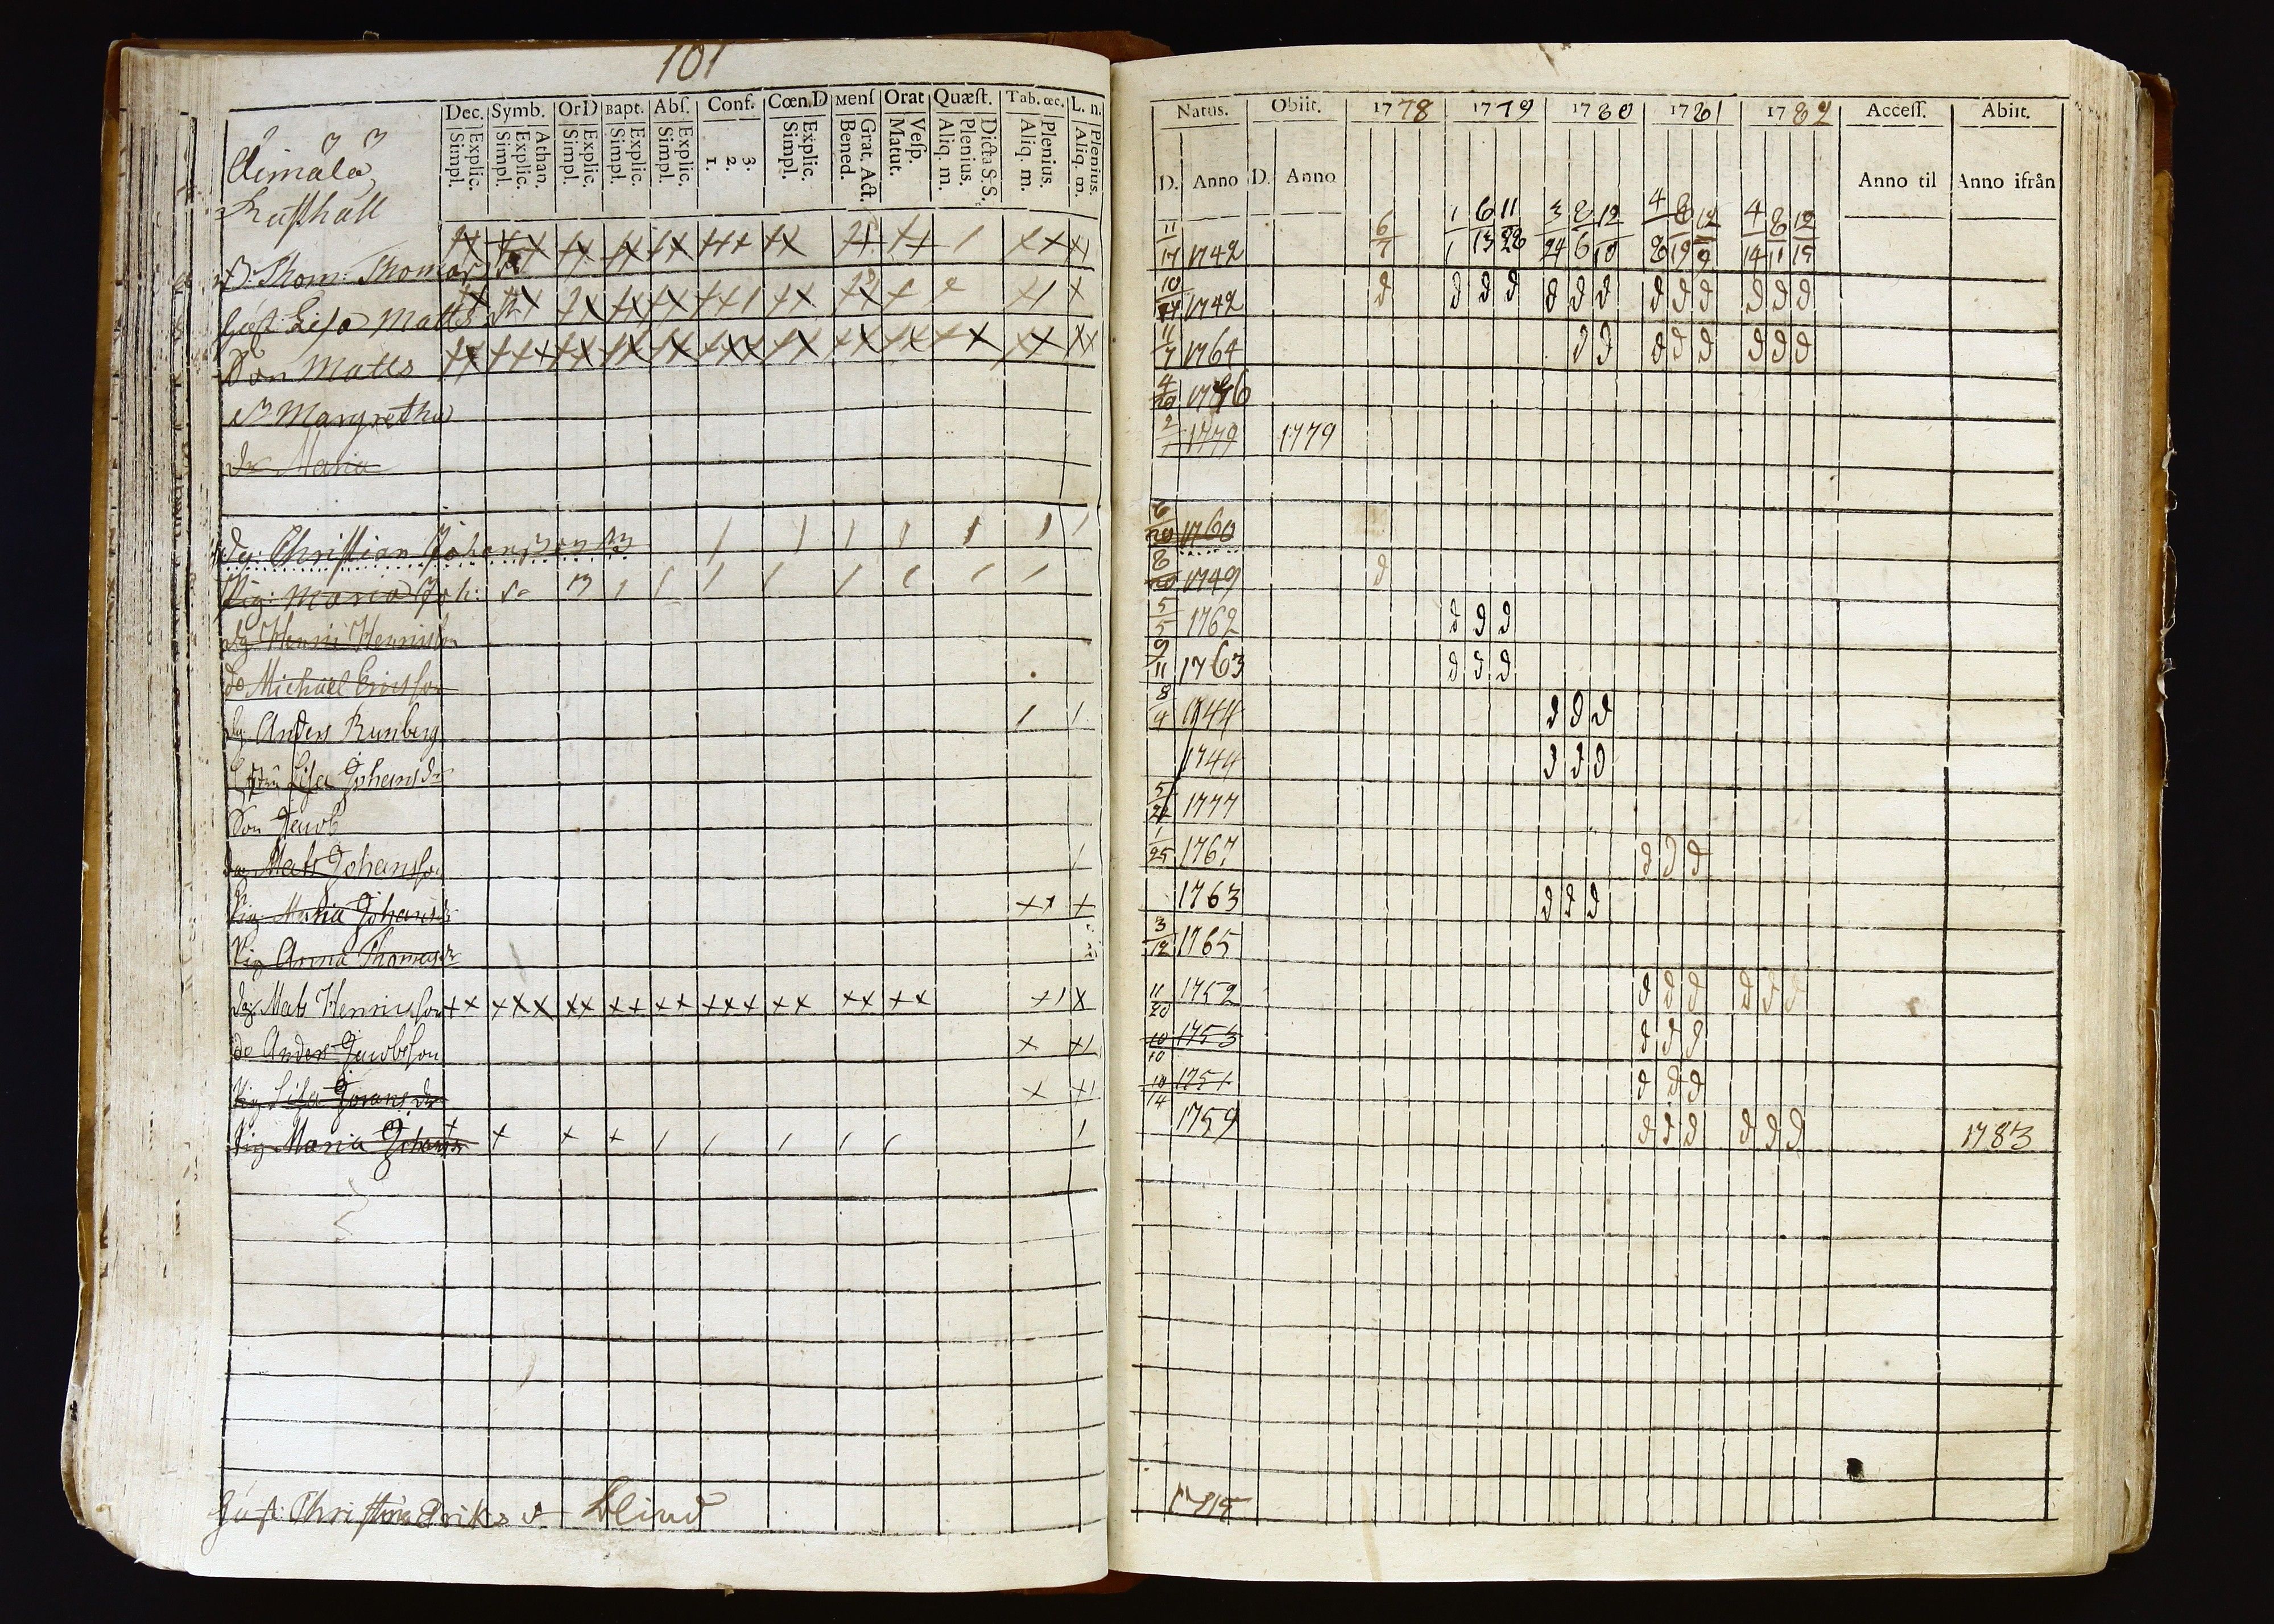 101
Dec. Symb. OrD Bapt. Abs. Conf. Cœn.D Mens Orat Quæst. Tab. œc. L. n.
Explic. Simpl. Athan. Explic. Simpl. Explic. Simpl. Explic. Simpl. Explic. Simpl. 3. 2. 1. Explic. Simpl. Grat. Act. Bened. Vesp. Matut. Dicta S.S. Plenius. Aliq. m. Plenius. Aliq. m. Plenius. Aliq. m.
Äimälä
Rusthåll
B. Thom: Thomas
Hust Lisa Matts
Son Matts
Dr Margretha
dr Maria
dg: Christian Johansson
Pig: Maria Joh:
dg Henric Henricsson
do Michael Ericsson
dg Anders Runberg
Hustru Lisa Johansdr
Son Jacob
dg Mats Johansson
Pig Maria Johansdr
Pig Anna Thomasdr
dg Mats Henricsson
do Anders Jacobsson
Pig Lisa Göransdr
Pig Maria Johansdr
Hust: Christina Eriks dr blind
Natus. Obiit. 1778 1779 1780 1781 1782 Access. Abiit.
D. Anno D. Anno Anno til Anno ifrån
6/7 1/1 6/13 11/28 3/24 8/6 12/10 4/8 8/19 12/9 4/14 8/11 12/15
11/17 1742
10/24 1742 d d d d d d d d d d d d d
11/7 1764 d d d d d d d d
4/20 1776
2/1 1779 1779
6/20 1760
8/20 1749 d
5/5 1762 d d d
9/11 1763 d d d
8/9 1744 d d d
1744 d d d
5/21 1777
1/25 1767 d d d
1763 d d d
3/12 1765
11/20 1752 d d d d d d
10/10 1753 d d d
10/14 1751 d d d
1759 d d d d d d 1783
1715